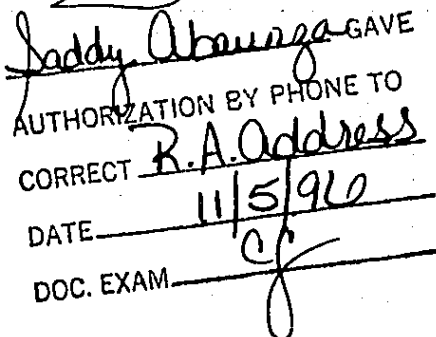 Saddy Abaunza GAVE
AUTHORIZATION BY PHONE TO
CORRECT R.A. Address
DATE 11/5/96
DOC. EXAM